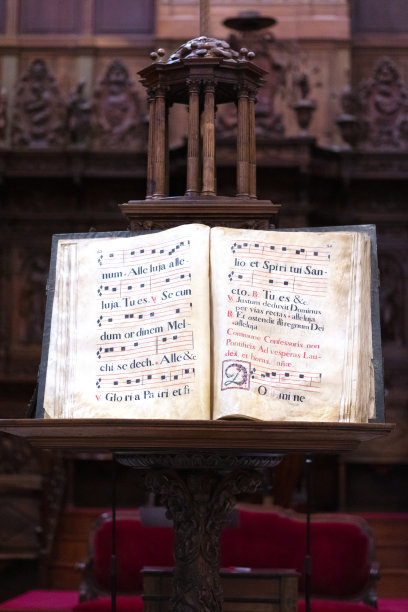 num. Alle luja alle
luja. Tu es ℣ Secun
dum ordinem Mel
chi se dech. Alle
℣ Gloria Patri et fi
lio et Spiri tui San
cto. ℟ Tu es &c
℣ Justum deduxit Dominus
per vias rectas alleluja
℟ Et ostendit illi regnum Dei
alleluja
Commune Confessoris non
Pontificis Ad vesperas Lau
des et horas
D O mine